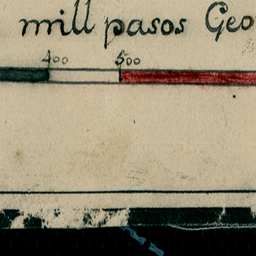 mill pasos Geo
400 500